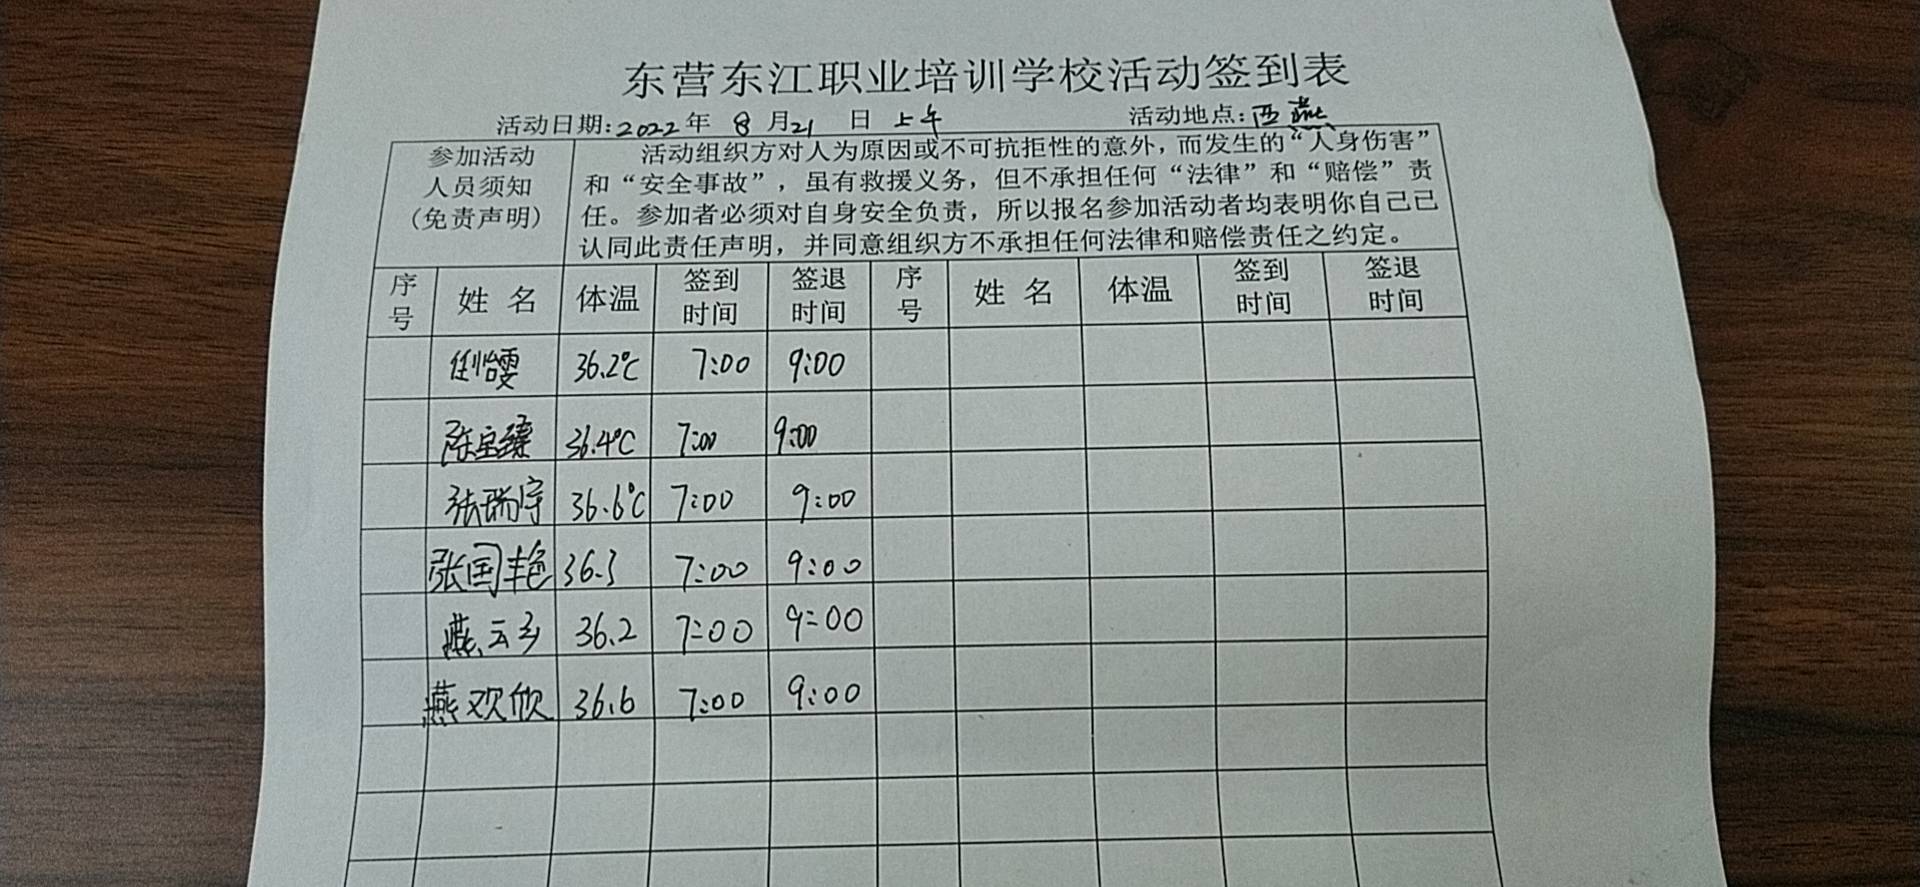 东营东江职业培训学校活动签到表
活动日期:2022年 8 月21 日 上午 活动地点:西燕
参加活动人员须知(免责声明)
活动组织方对人为原因或不可抗拒性的意外，而发生的“人身伤害”
和“安全事故”，虽有救援义务，但不承担任何“法律”和“赔偿”责
任。参加者必须对自身安全负责，所以报名参加活动者均表明你自己已
认同此责任声明，并同意组织方不承担任何法律和赔偿责任之约定。
序号 姓名 体温 签到时间 签退时间 序号 姓名 体温 签到时间 签退时间
任怡雯 36.2℃ 7:00 9:00
36.4℃ 7:00 9:00
张瑞宇 36.6℃ 7:00 9:00
张国艳 36.3 7:00 9:00
燕云乡 36.2 7:00 9:00
燕欢欣 36.6 7:00 9:00